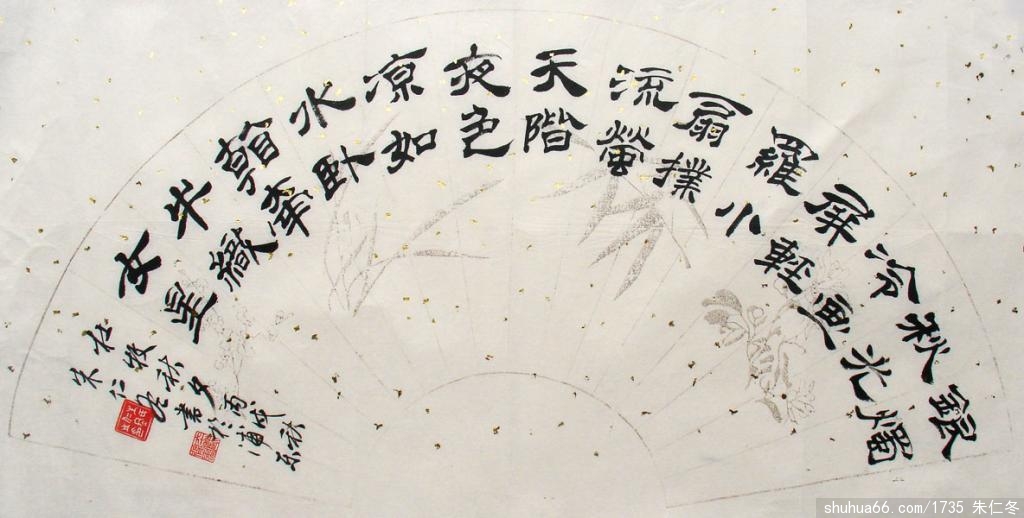 銀燭
秋光
冷画
屏輕
羅小
扇撲
流螢
天階
夜色
凉如
水卧
看牽
牛織
女星
杜牧秋夕丙戌秋
朱仁冬書於浦东
shuhua66.com/1735 朱仁冬